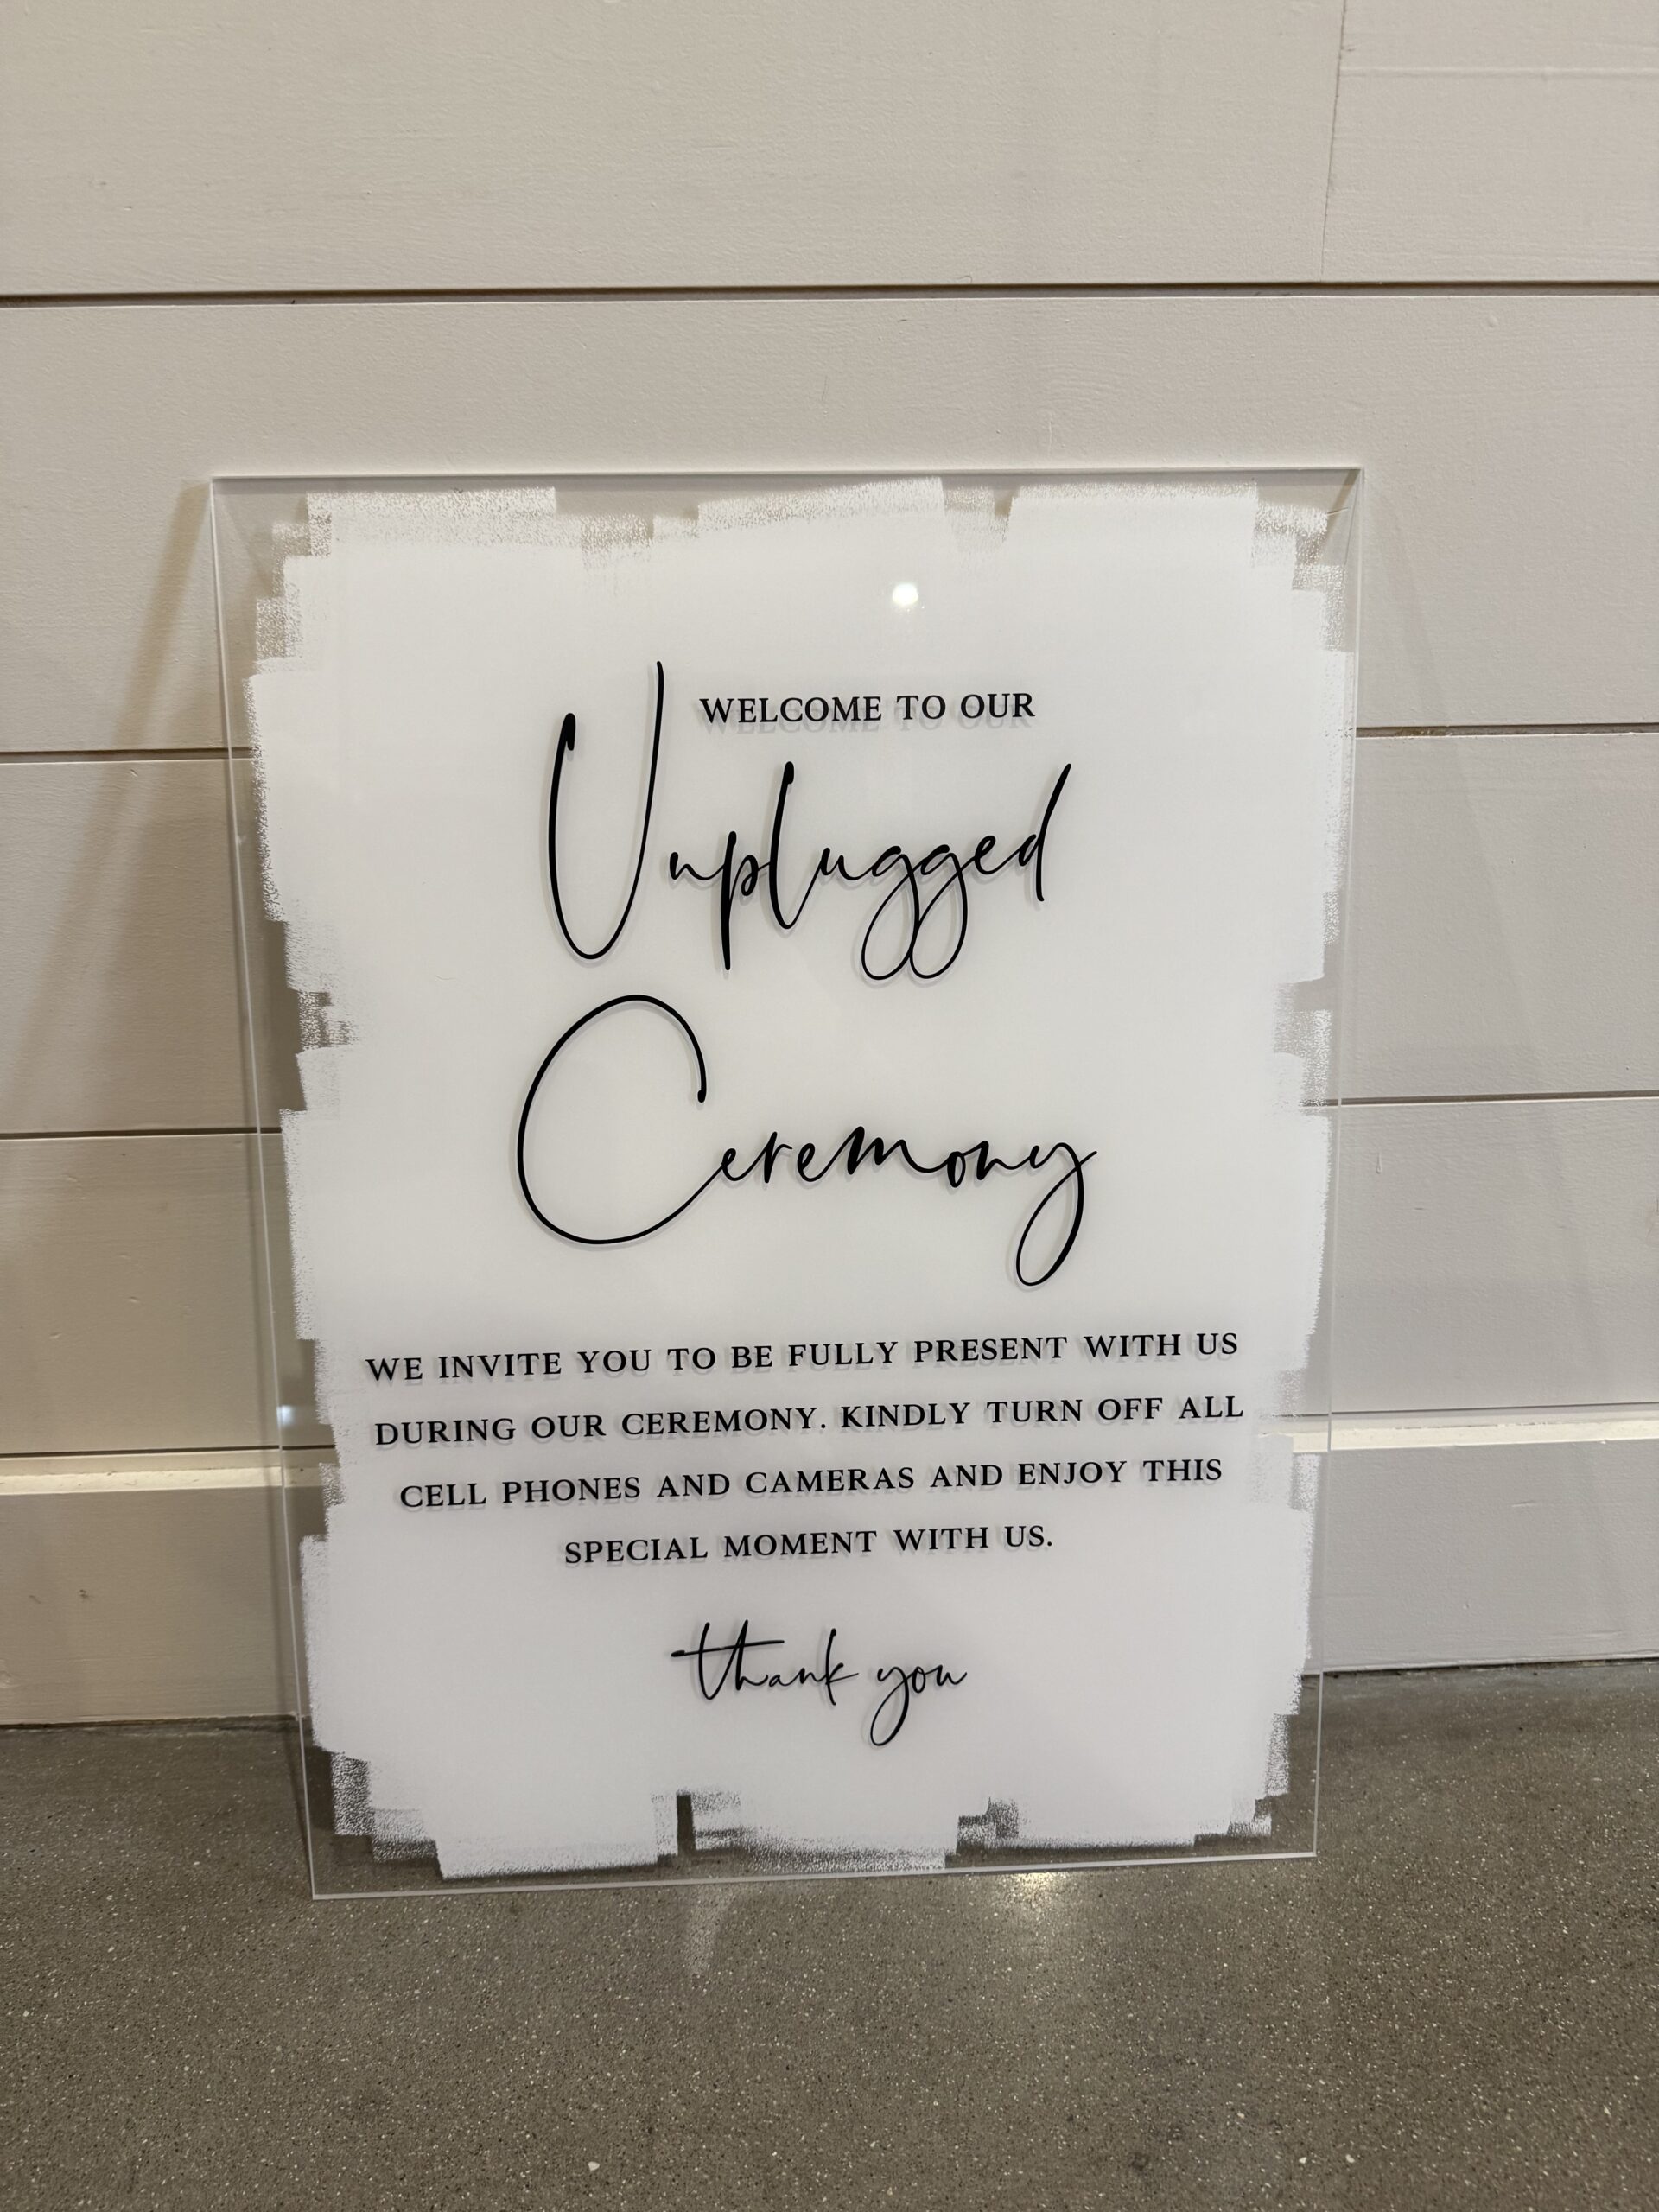 WELCOME TO OUR
Unplugged
Ceremony
WE INVITE YOU TO BE FULLY PRESENT WITH US
DURING OUR CEREMONY. KINDLY TURN OFF ALL
CELL PHONES AND CAMERAS AND ENJOY THIS
SPECIAL MOMENT WITH US.
thank you